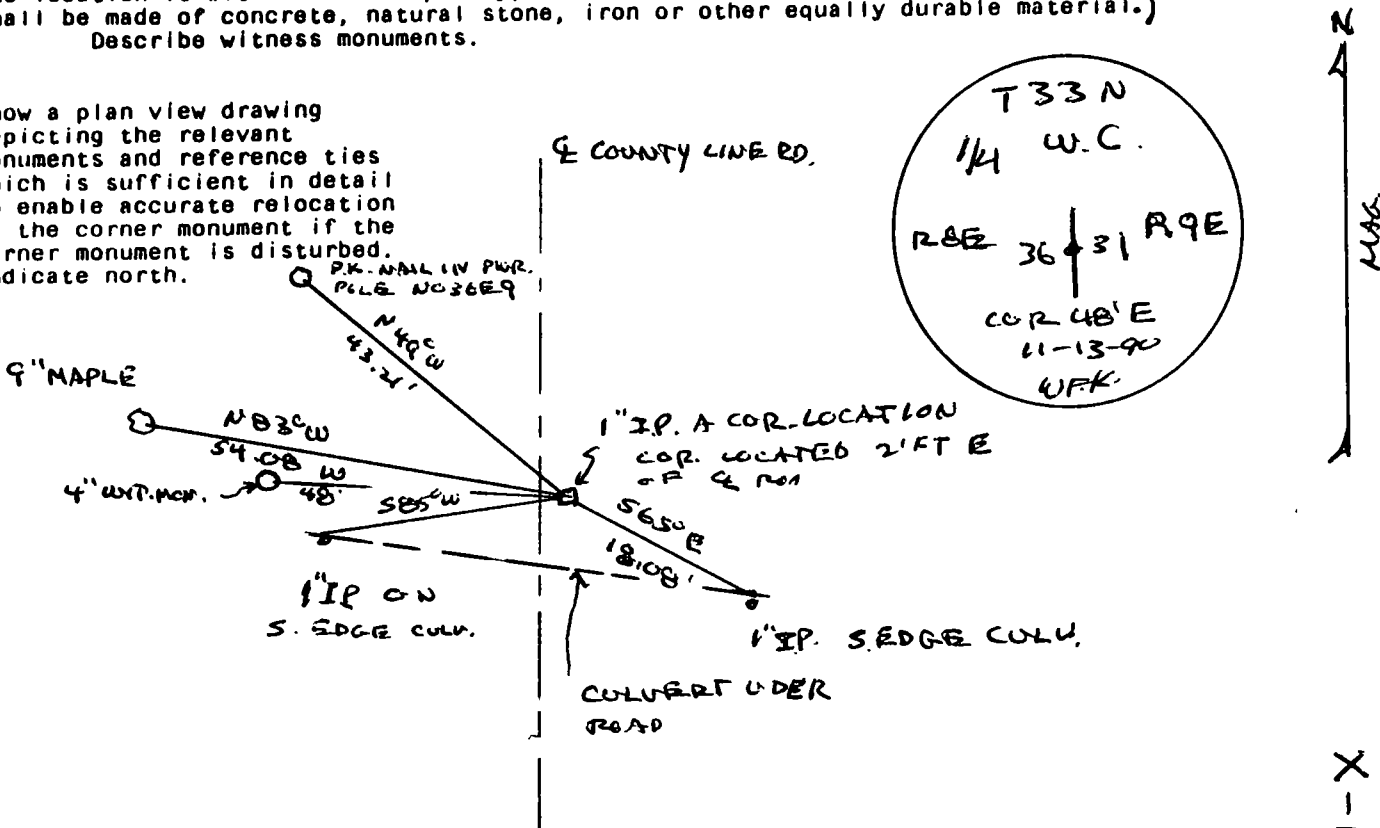 all be made of concrete, natural stone, iron or other equally durable material.)
Describe witness monuments.
ow a plan view drawing
picting the relevant
numents and reference ties
ich is sufficient in detail
enable accurate relocation
the corner monument if the
rner monument is disturbed.
dicate north.
℄ COUNTY LINE RD.
T33N
1/4 W.C.
R8E 36 31 R9E
COR 48' E
11-13-90
WFK.
N
MAG.
P.K. NAIL IN PWR.
POLE NO36E9
N49°W
43.21'
9" MAPLE
N83°W
54.08
W
48'
4" WIT. MON.
S85°W
1" I.P. A COR. LOCATION
COR. LOCATED 2' FT E
OF ℄
S65°E
18.08'
1" IP ON
S. EDGE CULV.
1" IP. S. EDGE CULV.
CULVERT UDER
ROAD
X